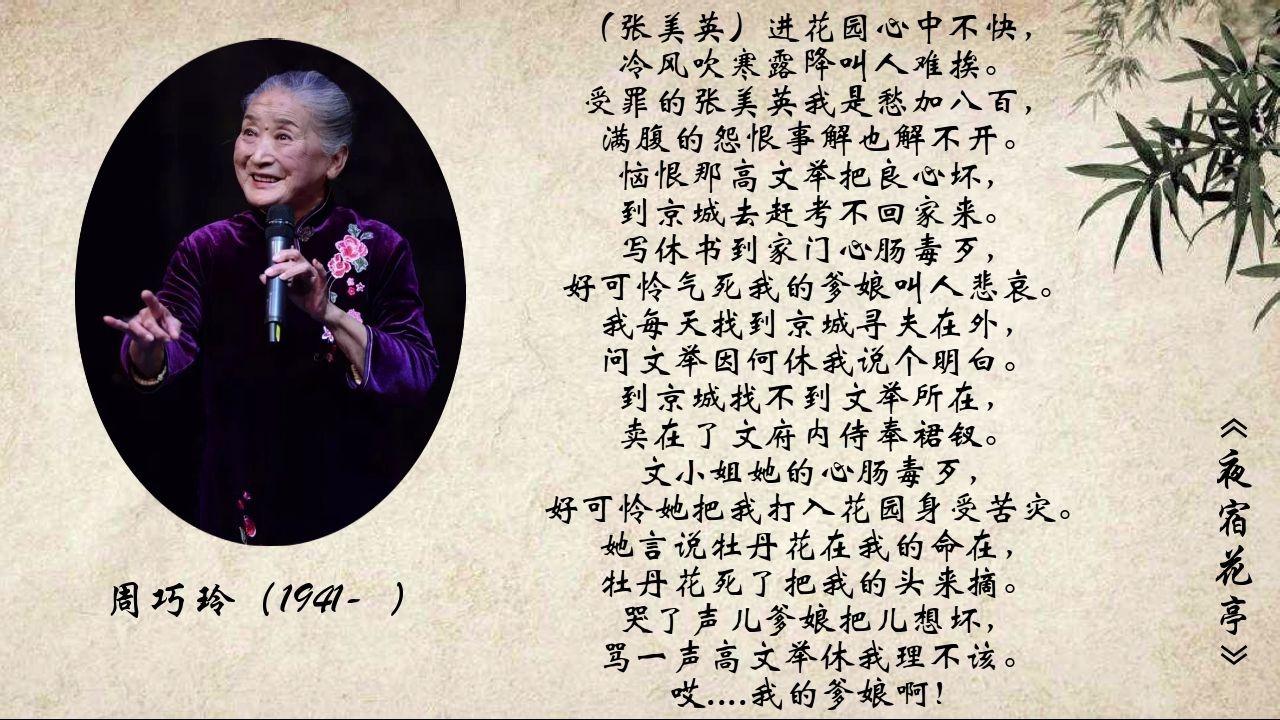 （张美英）进花园心中不快，
冷风吹寒露降叫人难挨。
受罪的张美英我是愁加八百，
满腹的怨恨事解也解不开。
恼恨那高文举把良心坏，
到京城去赶考不回家来。
写休书到家门心肠毒歹，
好可怜气死我的爹娘叫人悲哀。
我每天找到京城寻夫在外，
问文举因何休我说个明白。
到京城找不到文举所在，
卖在了文府内侍奉裙钗。
文小姐她的心肠毒歹，
好可怜她把我打入花园身受苦灾。
她言说牡丹花在我的命在，
牡丹花死了把我的头来摘。
哭了声儿爹娘把儿想坏，
骂一声高文举休我理不该。
哎....我的爹娘啊！
周巧玲（1941- ）
《夜宿花亭》